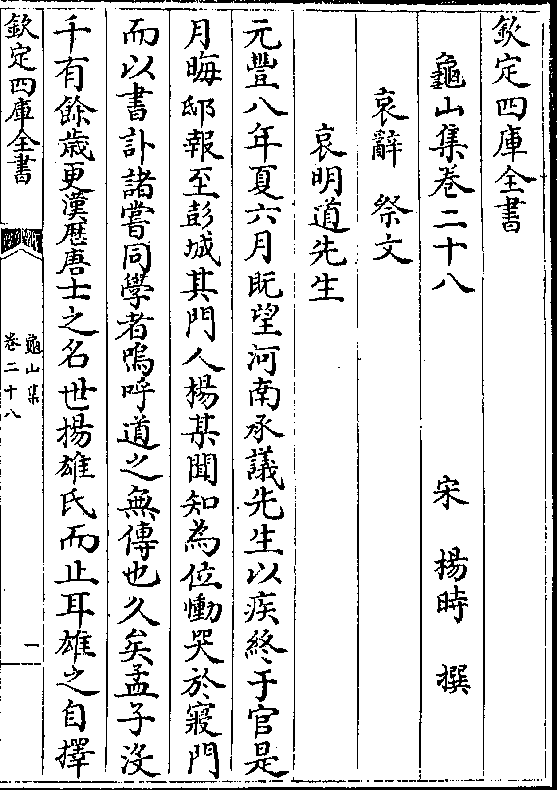 欽定四庫全書
龜山集巻二十八
宋 楊時 撰
哀辭 祭文
哀明道先生
元豐八年夏六月既望河南承議先生以疾終于官是
月晦邸報至彭城其門人楊某聞知為位慟哭於寢門
而以書訃諸嘗同學者嗚呼道之無傳也久矣孟子沒
千有餘歳更漢歴唐士之名世揚雄氏而止耳雄之自擇
欽定四庫全書
龜山集
巻二十八
一